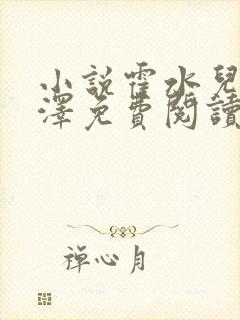 小說霍水兒
澤免費閱讀
禅心月